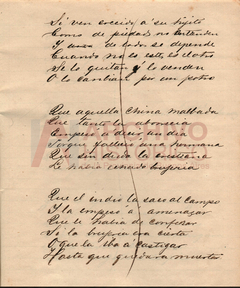 Si ven crecido a su hijito
Como de piedad no entienden
Y una de todas se depende
Cuando no es este, es el otro
Se lo quitan y lo venden
O lo cambian por un potro
Que aquella china malbada
Que tanto la aborrecia
Empezó a decir un dia
Porque falleció una hermana
Que sin duda la cristiana
Le habia echado brujeria
Que el indio la saco al campo
Y la empezó a amenazar
Que le habia de confesar
Si la brujeria era cierta
O que la iba a castigar
Hasta que quedara muerta